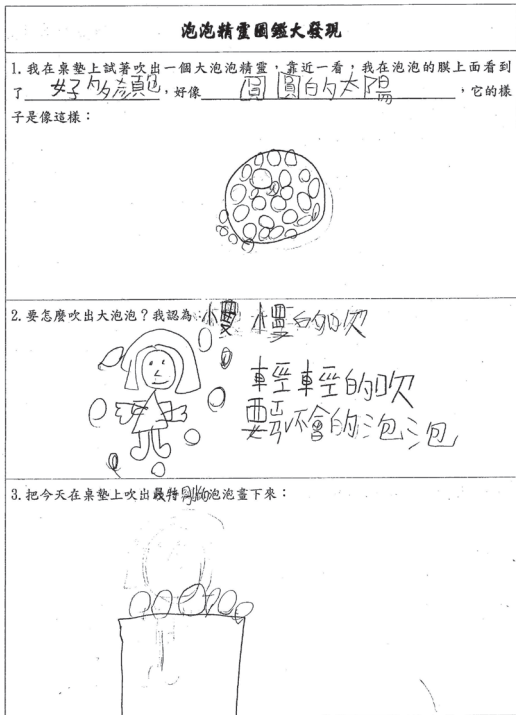 泡泡精靈圖鑑大發現
1. 我在桌墊上試著吹出一個大泡泡精靈，靠近一看，我在泡泡的膜上面看到
了 好多顏色，好像 圓圓的太陽，它的樣
子是像這樣：
2. 要怎麼吹出大泡泡？我認為：慢慢的吹
輕輕的吹
會的泡泡
3. 把今天在桌墊上吹出最特別的泡泡畫下來：